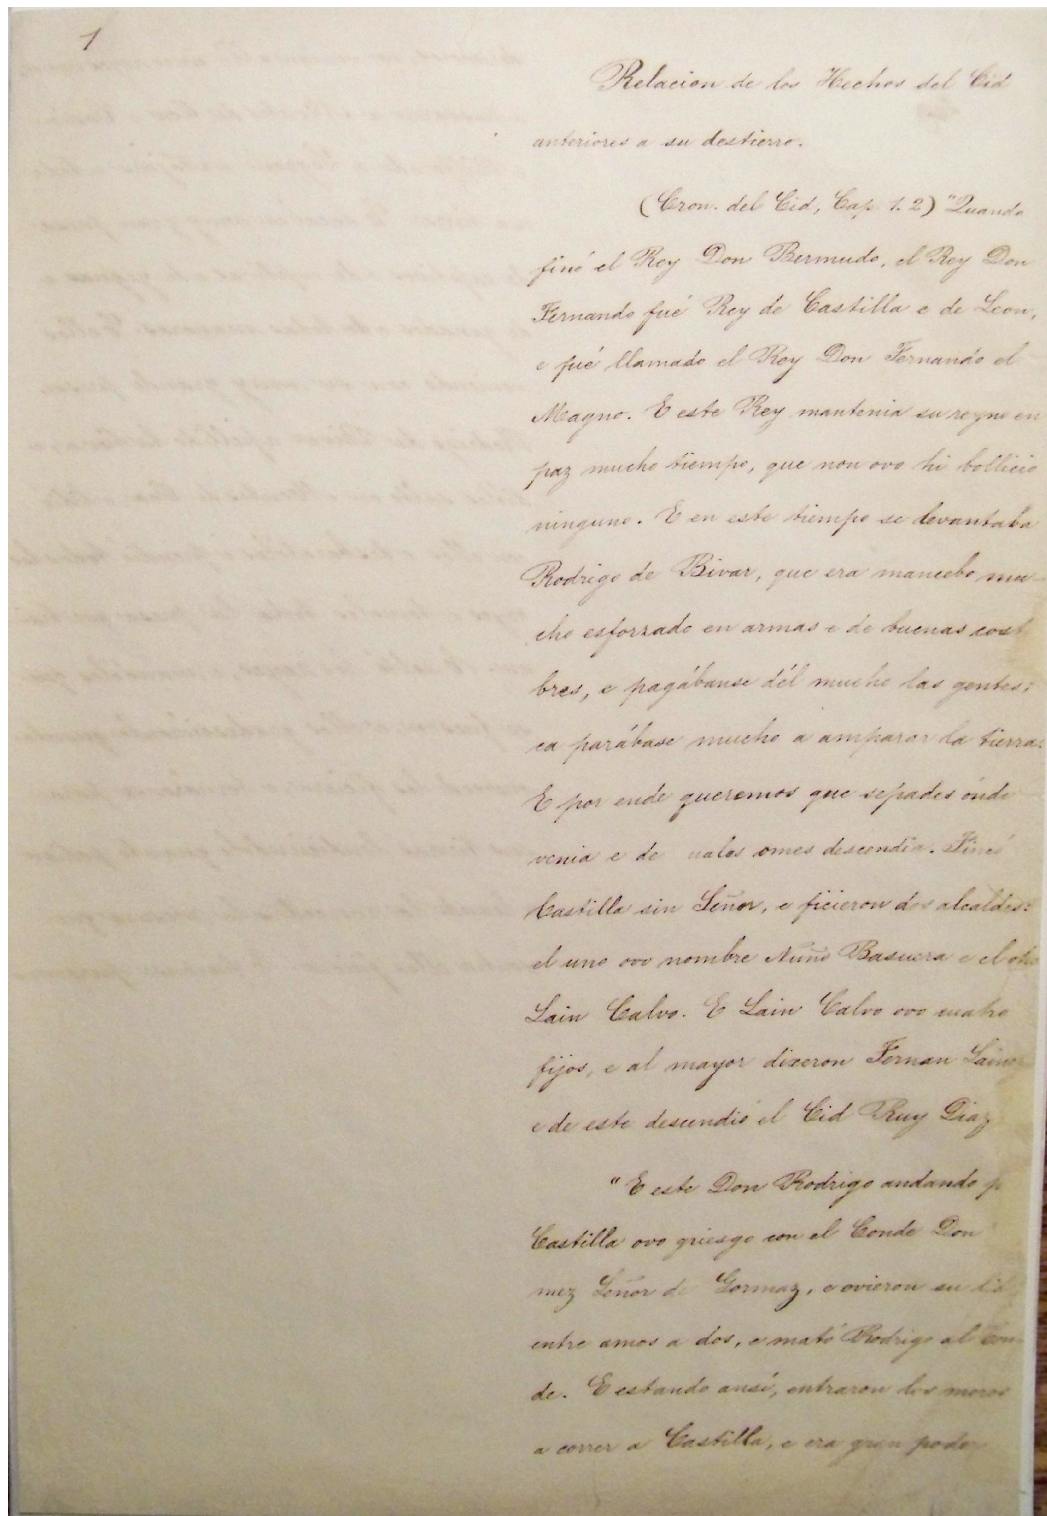 1
Relacion de los Hechos del Cid
anteriores a su destierro.
(Cron. del Cid, Cap. 1. 2) "Quando
finó el Rey Don Bermudo, el Rey Don
Fernando fué Rey de Castilla e de Leon,
e fué llamado el Rey Don Fernando el
Magno. E este Rey mantenia su reyno en
paz mucho tiempo, que non ovo hi bollicio
ninguno. E en este tiempo se levantaba
Rodrigo de Bivar, que era mancebo mu-
cho esforzado en armas e de buenas cost
bres, e pagábanse dél mucho las gentes;
ca parábase mucho a amparar la tierra.
E por ende queremos que sepades ónde
venia e de uales omes descendia. Fincó
Castilla sin Señor, e ficieron dos alcaldes:
el uno ovo nombre Nuño Rasuera e el otro
Lain Calvo. E Lain Calvo ovo cuatro
fijos, e al mayor dixeron Fernan Lainez
e de este descendió el Cid Ruy Diaz
"E este Don Rodrigo andando p
Castilla ovo griesgo con el Conde Don
mez Señor de Gormaz, e ovieron su
entre amos a dos, e mató Rodrigo al Con-
de. E estando ansí, entraron los moros
a correr a Castilla, e era gran poder